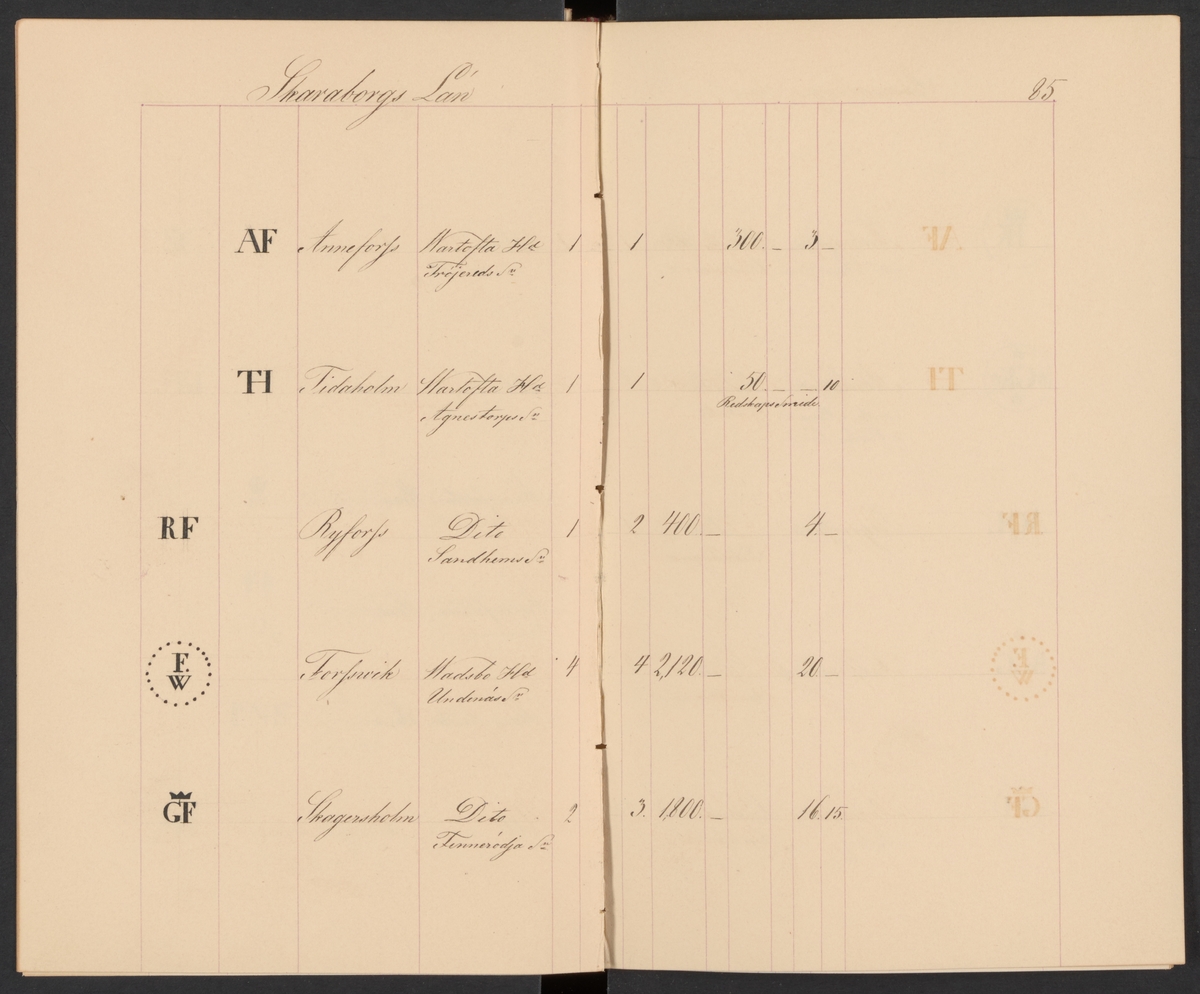 Skaraborgs Län 85.
AF Anneforss Wartofta Hd 1 1 300. — 3 —
Fröjereds Sn
TH Tidaholm Wartofta Hd 1 1 50. — — 10
Redskaps Smide.
Agnestorps Sn
RF Ryforss Dito 1 2 400. — 4. —
Sandhems Sn
F. W Forsswik Wadsbo Hd 4 4 2,120. — 20. —
Undenäs Sn
GF Skagersholm Dito 2 3. 1,800. — 16. 15.
Finnerödja Sn